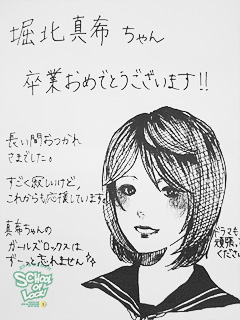 堀北真希 ちゃん
卒業おめでとうございます!!
長い間おつかれ
さまでした。
すごく寂しいけど、
これからも応援しています。
真希ちゃんの
ガールズロックスは
ずーっと忘れません
ドラマも
頑張
ください
SCHOOL
OF
LOCK!